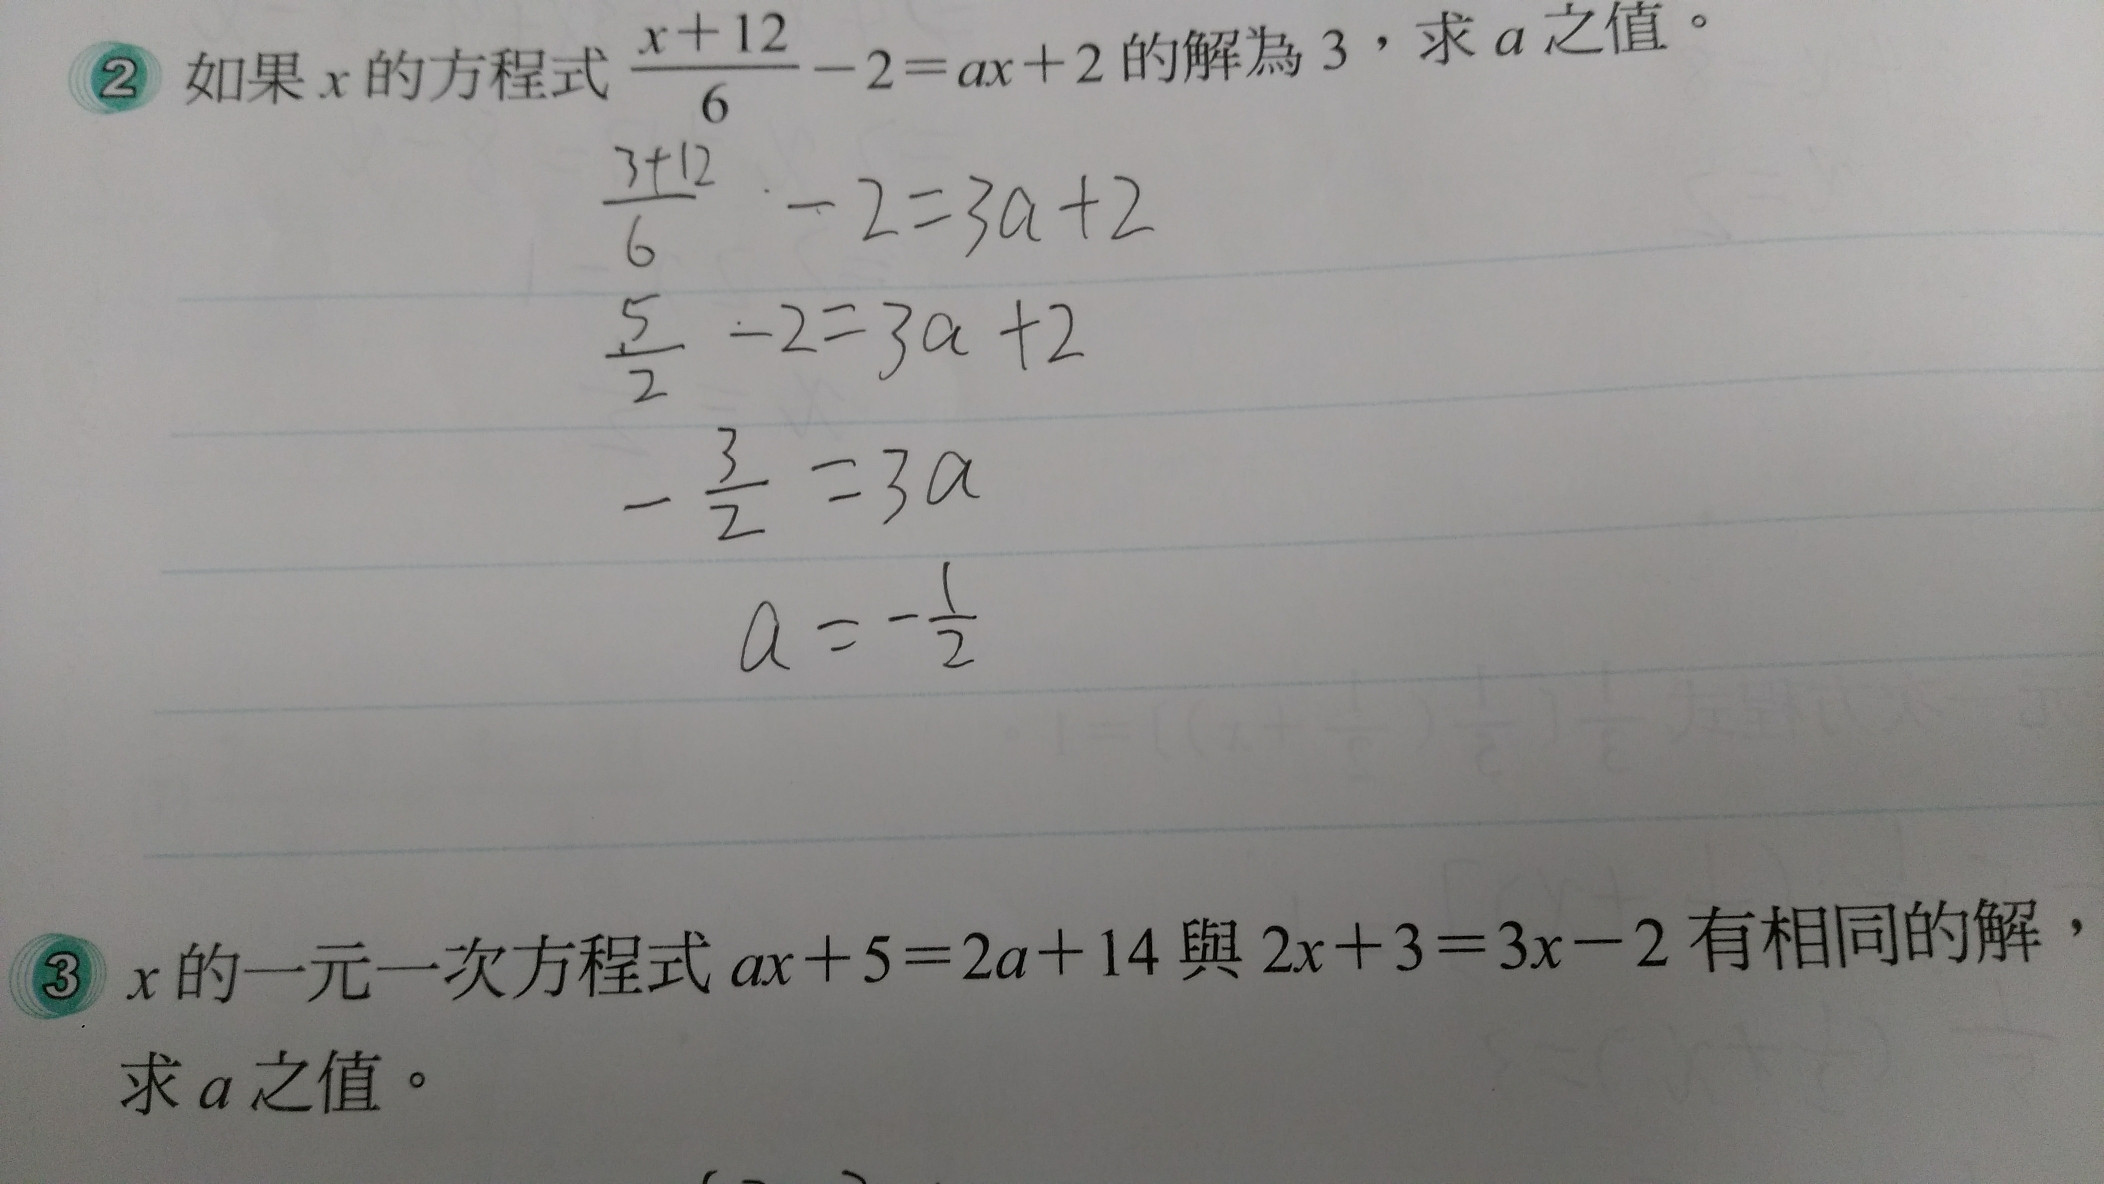 2 如果 x 的方程式 \frac{x+12}{6}-2=ax+2 的解為 3，求 a 之值。
\frac{3+12}{6} -2=3a+2
\frac{5}{2} -2=3a+2
-\frac{3}{2} =3a
a=-\frac{1}{2}
3 x 的一元一次方程式 ax+5=2a+14 與 2x+3=3x-2 有相同的解，
求 a 之值。